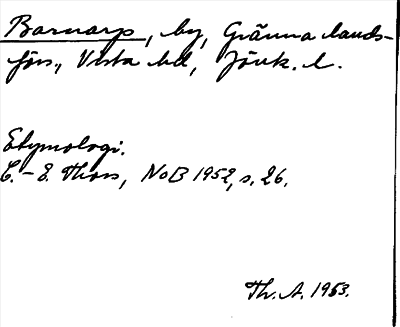 Barnarp, by, Gränna lands-
förs., Vista hd, Jönk. l.
Etymologi.
C.-E. Thors, NoB 1952, s. 26.
Th. A. 1953.